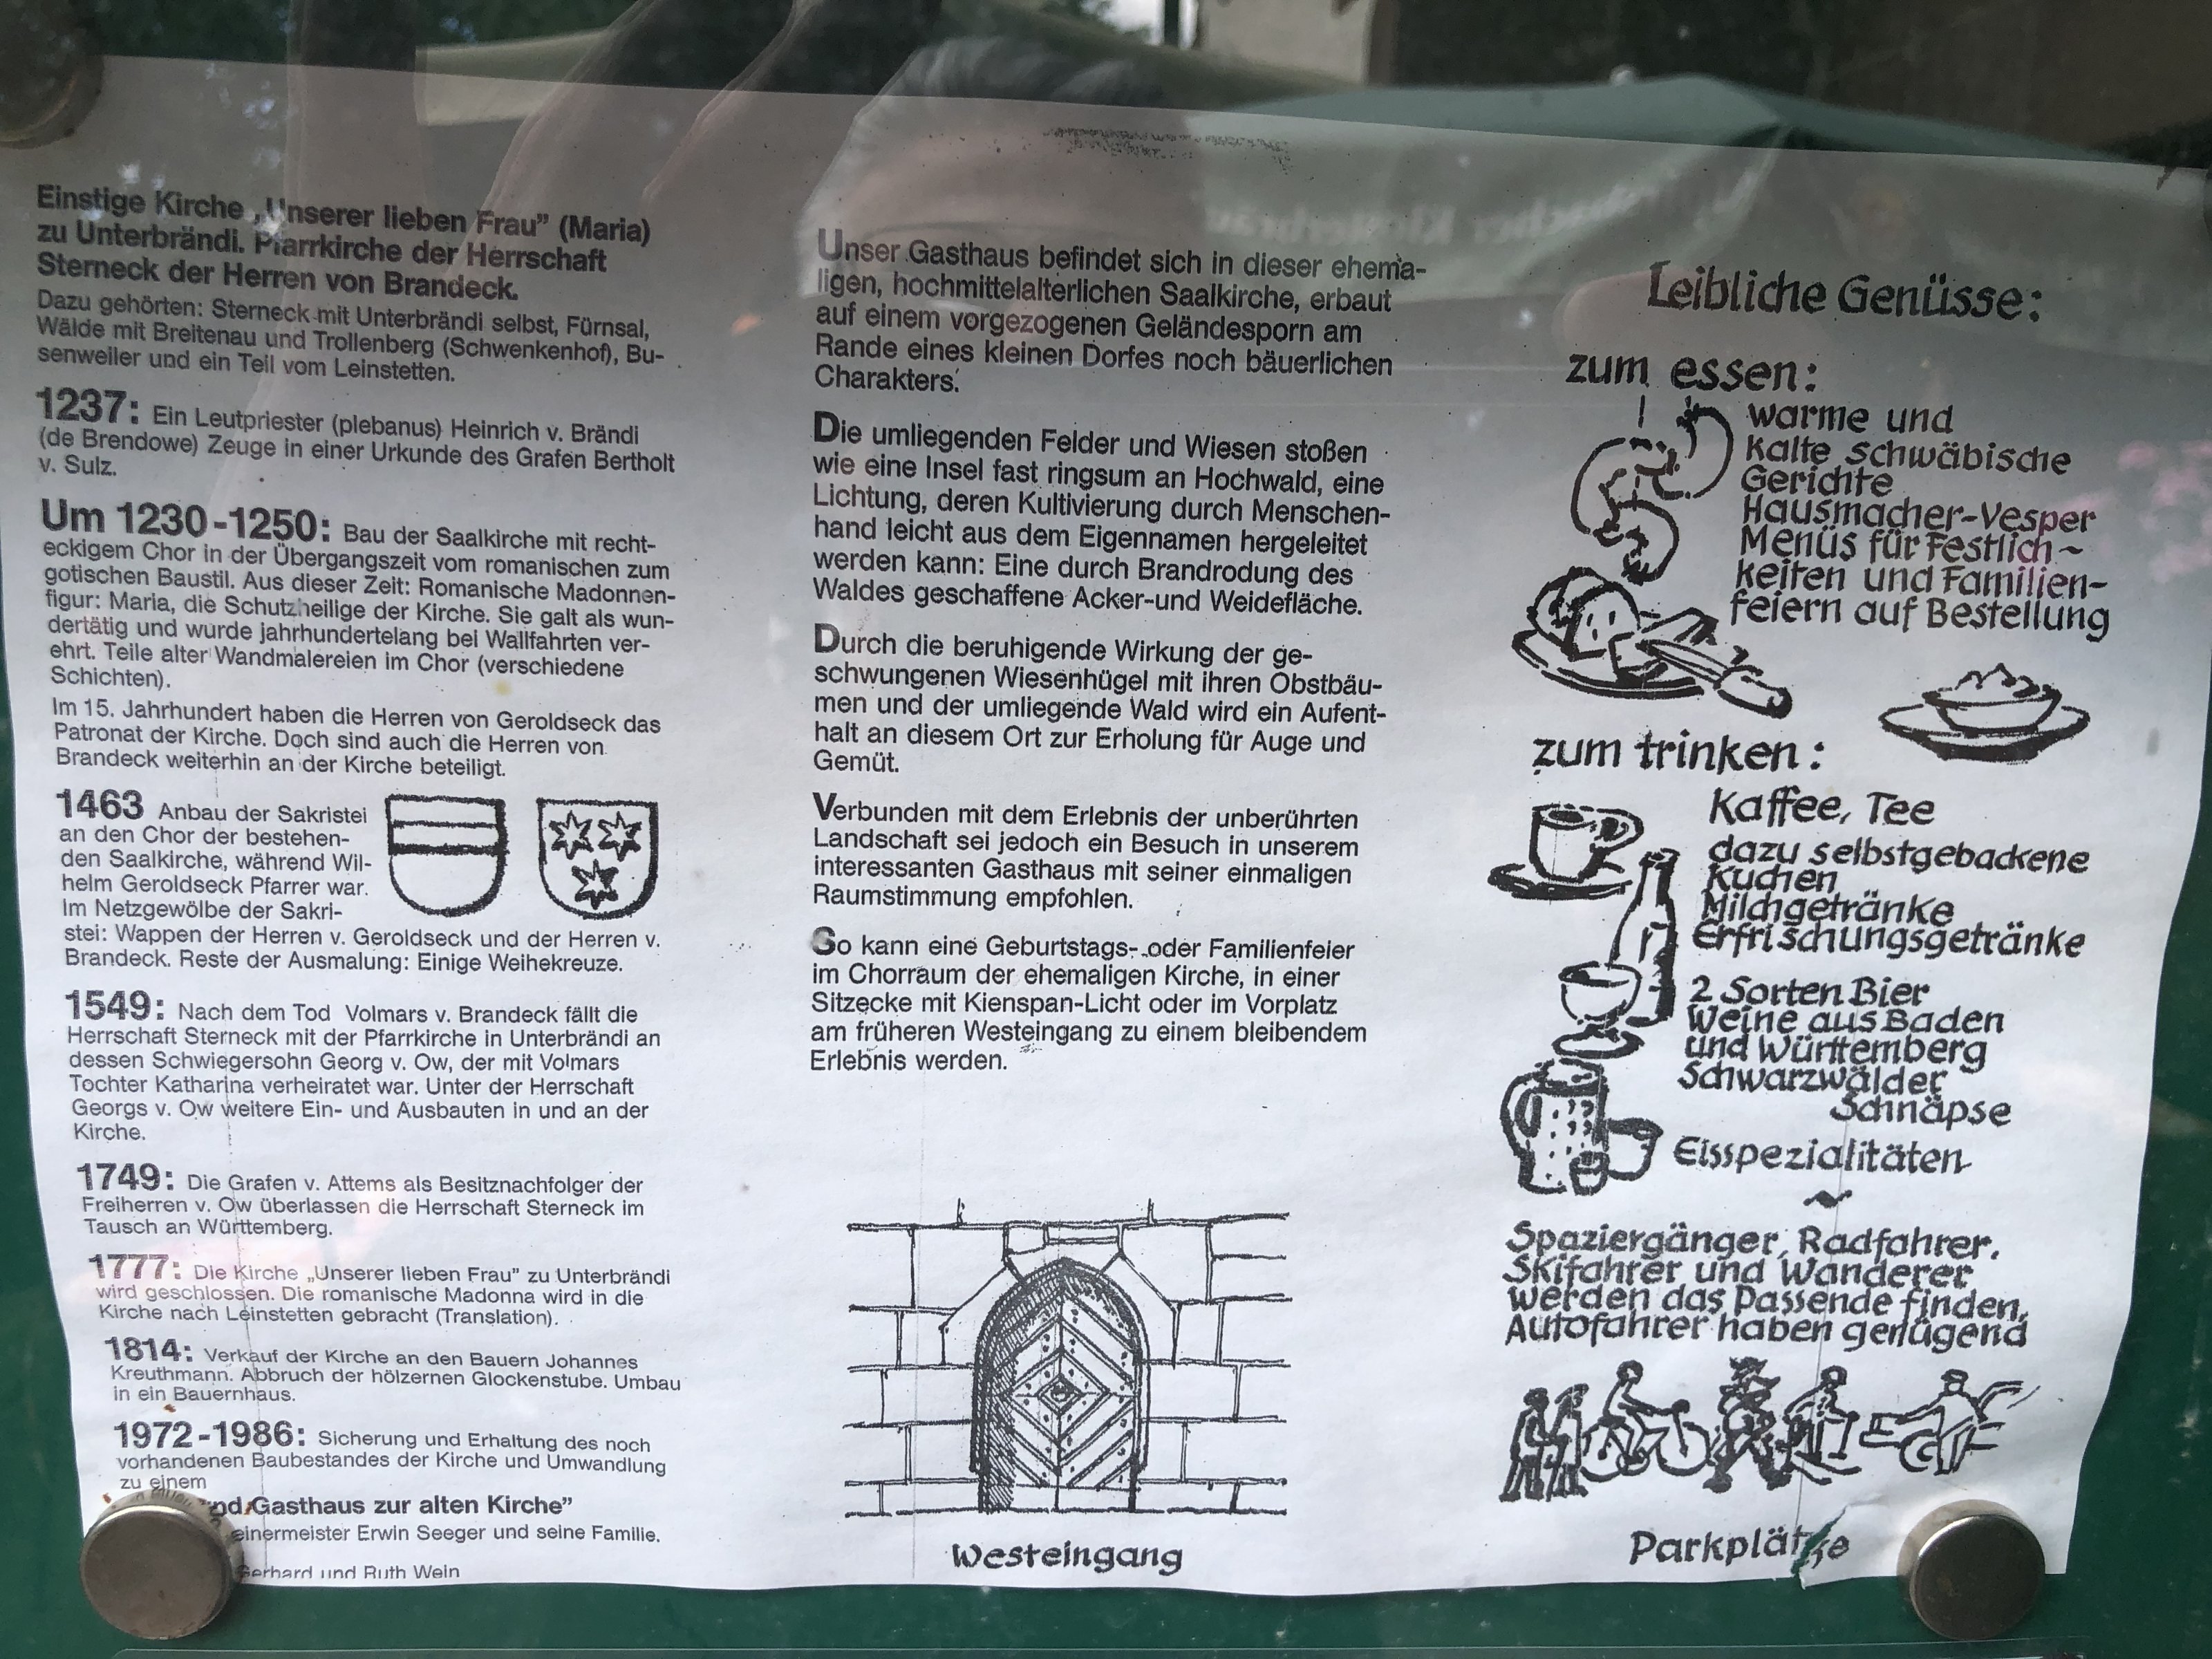 Einstige Kirche „Unserer lieben Frau” (Maria)
zu Unterbrändi. Pfarrkirche der Herrschaft
Sterneck der Herren von Brandeck.
Dazu gehörten: Sterneck mit Unterbrändi selbst, Fürnsal,
Wälde mit Breitenau und Trollenberg (Schwenkenhof), Bu-
senweiler und ein Teil vom Leinstetten.
1237: Ein Leutpriester (plebanus) Heinrich v. Brändi
(de Brendowe) Zeuge in einer Urkunde des Grafen Bertholt
v. Sulz.
Um 1230-1250: Bau der Saalkirche mit recht-
eckigem Chor in der Übergangszeit vom romanischen zum
gotischen Baustil. Aus dieser Zeit: Romanische Madonnen-
figur: Maria, die Schutzheilige der Kirche. Sie galt als wun-
dertätig und wurde jahrhundertelang bei Wallfahrten ver-
ehrt. Teile alter Wandmalereien im Chor (verschiedene
Schichten).
Im 15. Jahrhundert haben die Herren von Geroldseck das
Patronat der Kirche. Doch sind auch die Herren von
Brandeck weiterhin an der Kirche beteiligt.
1463 Anbau der Sakristei
an den Chor der bestehen-
den Saalkirche, während Wil-
helm Geroldseck Pfarrer war.
Im Netzgewölbe der Sakri-
stei: Wappen der Herren v. Geroldseck und der Herren v.
Brandeck. Reste der Ausmalung: Einige Weihekreuze.
1549: Nach dem Tod Volmars v. Brandeck fällt die
Herrschaft Sterneck mit der Pfarrkirche in Unterbrändi an
dessen Schwiegersohn Georg v. Ow, der mit Volmars
Tochter Katharina verheiratet war. Unter der Herrschaft
Georgs v. Ow weitere Ein- und Ausbauten in und an der
Kirche.
1749: Die Grafen v. Attems als Besitznachfolger der
Freiherren v. Ow überlassen die Herrschaft Sterneck im
Tausch an Württemberg.
1777: Die Kirche „Unserer lieben Frau” zu Unterbrändi
wird geschlossen. Die romanische Madonna wird in die
Kirche nach Leinstetten gebracht (Translation).
1814: Verkauf der Kirche an den Bauern Johannes
Kreuthmann. Abbruch der hölzernen Glockenstube. Umbau
in ein Bauernhaus.
1972-1986: Sicherung und Erhaltung des noch
vorhandenen Baubestandes der Kirche und Umwandlung
zu einem
Gasthaus zur alten Kirche”
Erwin Seeger und seine Familie.
Gerhard und Ruth Wein
Unser Gasthaus befindet sich in dieser ehema-
ligen, hochmittelalterlichen Saalkirche, erbaut
auf einem vorgezogenen Geländesporn am
Rande eines kleinen Dorfes noch bäuerlichen
Charakters.
Die umliegenden Felder und Wiesen stoßen
wie eine Insel fast ringsum an Hochwald, eine
Lichtung, deren Kultivierung durch Menschen-
hand leicht aus dem Eigennamen hergeleitet
werden kann: Eine durch Brandrodung des
Waldes geschaffene Acker-und Weidefläche.
Durch die beruhigende Wirkung der ge-
schwungenen Wiesenhügel mit ihren Obstbäu-
men und der umliegende Wald wird ein Aufent-
halt an diesem Ort zur Erholung für Auge und
Gemüt.
Verbunden mit dem Erlebnis der unberührten
Landschaft sei jedoch ein Besuch in unserem
interessanten Gasthaus mit seiner einmaligen
Raumstimmung empfohlen.
So kann eine Geburtstags- oder Familienfeier
im Chorraum der ehemaligen Kirche, in einer
Sitzecke mit Kienspan-Licht oder im Vorplatz
am früheren Westeingang zu einem bleibendem
Erlebnis werden.
Westeingang
Leibliche Genüsse:
zum essen:
warme und
Kalte schwäbische
Gerichte
Hausmacher-Vesper
Menüs für Festlich~
keiten und Familien-
feiern auf Bestellung
zum trinken:
Kaffee, Tee
dazu selbstgebackene
Kuchen
Milchgetränke
Erfrischungsgetränke
2 Sorten Bier
Weine aus Baden
und Württemberg
Schwarzwälder
Schnäpse
Eisspezialitäten
Spaziergänger, Radfahrer,
Skifahrer und Wanderer
werden das Passende finden,
Autofahrer haben genügend
Parkplätze